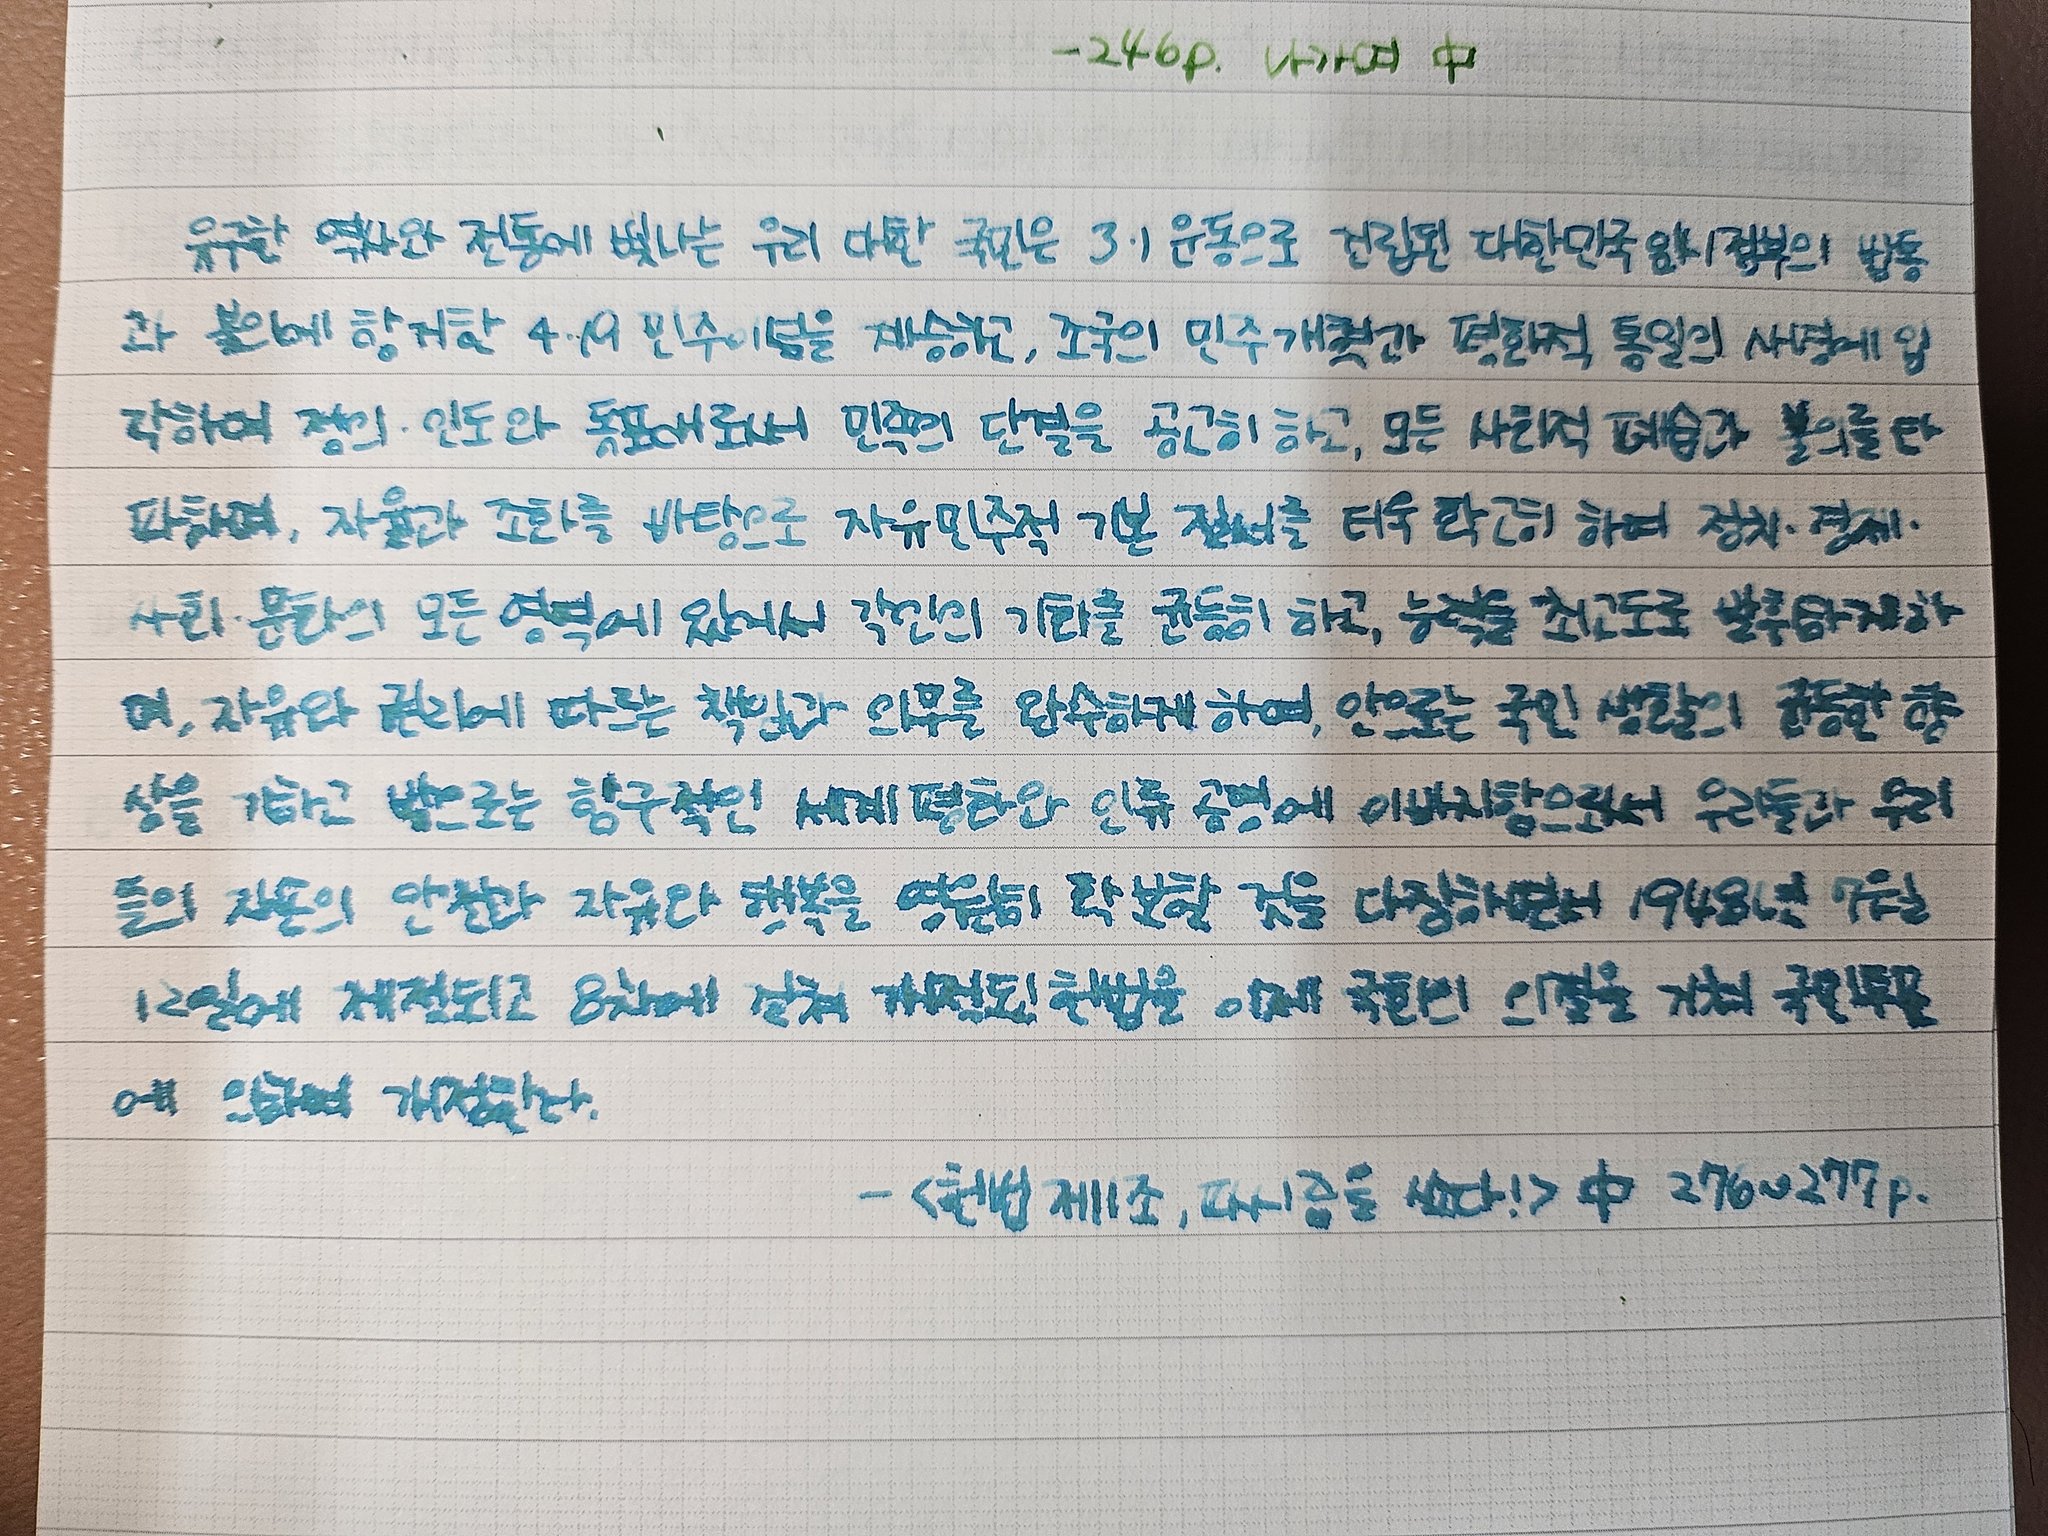 -246p. 나가며 中
유구한 역사와 전통에 빛나는 우리 대한 국민은 3·1 운동으로 건립된 대한민국 임시정부의 법통
과 불의에 항거한 4·19 민주이념을 계승하고, 조국의 민주개혁과 평화적 통일의 사명에 입
각하여 정의·인도와 동포애로써 민족의 단결을 공고히 하고, 모든 사회적 폐습과 불의를 타
파하며, 자율과 조화를 바탕으로 자유민주적 기본 질서를 더욱 확고히 하여 정치·경제·
사회·문화의 모든 영역에 있어서 각인의 기회를 균등히 하고, 능력을 최고도로 발휘하게 하
며, 자유와 권리에 따르는 책임과 의무를 완수하게 하여, 안으로는 국민 생활의 균등한 향
상을 기하고 밖으로는 항구적인 세계평화와 인류 공영에 이바지함으로써 우리들과 우리
들의 자손의 안전과 자유와 행복을 영원히 확보할 것을 다짐하면서 1948년 7월
12일에 제정되고 8차에 걸쳐 개정된 헌법을 이제 국회의 의결을 거쳐 국민투표
에 의하여 개정한다.
- <헌법 제11조, 파시즘을 쏘다!> 中 276~277p.